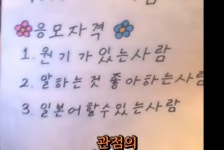 응모자격
1. 원기가 있는사람
2. 말하는것 좋아하는사람
3. 일본어할수있는사람
관점의